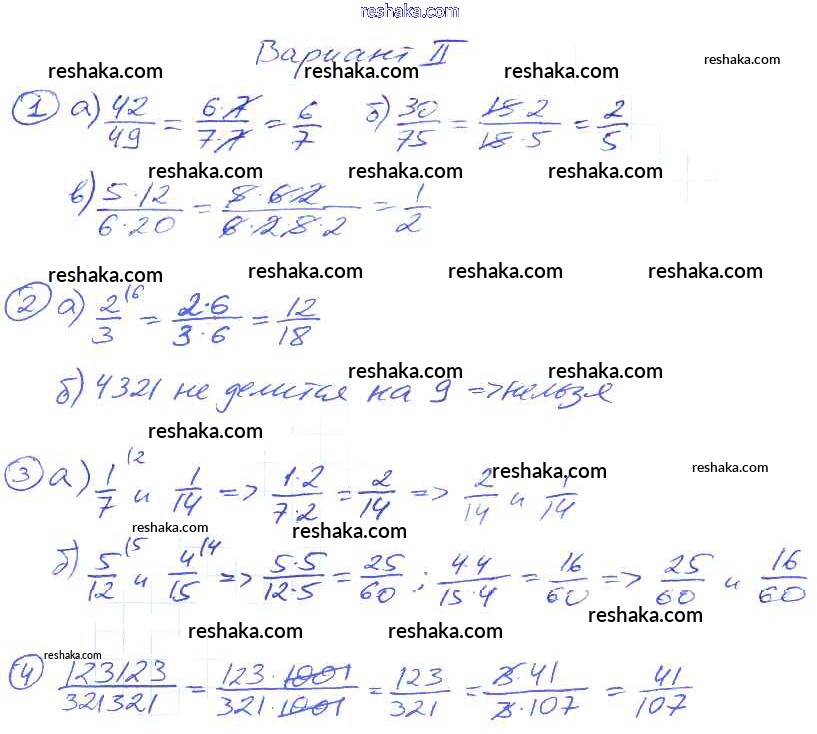 reshaka.com
Вариант II
reshaka.com reshaka.com reshaka.com reshaka.com
① а) 42/49 = 6·7/7·7 = 6/7 б) 30/75 = 15·2/15·5 = 2/5
reshaka.com reshaka.com reshaka.com
в) 5·12/6·20 = 5·6·2/6·2·5·2 = 1/2
reshaka.com reshaka.com reshaka.com reshaka.com
② а) 2/3 (6 = 2·6/3·6 = 12/18
reshaka.com reshaka.com
б) 4321 не делится на 9 => нельзя
reshaka.com
③ а) 1/7 (2 и 1/14 => 1·2/7·2 = 2/14 => 2/14 и 1/14
reshaka.com reshaka.com
reshaka.com reshaka.com
б) 5/12 (5 и 4/15 (4 => 5·5/12·5 = 25/60 ; 4·4/15·4 = 16/60 => 25/60 и 16/60
reshaka.com reshaka.com reshaka.com
reshaka.com
④ 123123/321321 = 123·1001/321·1001 = 123/321 = 3·41/3·107 = 41/107